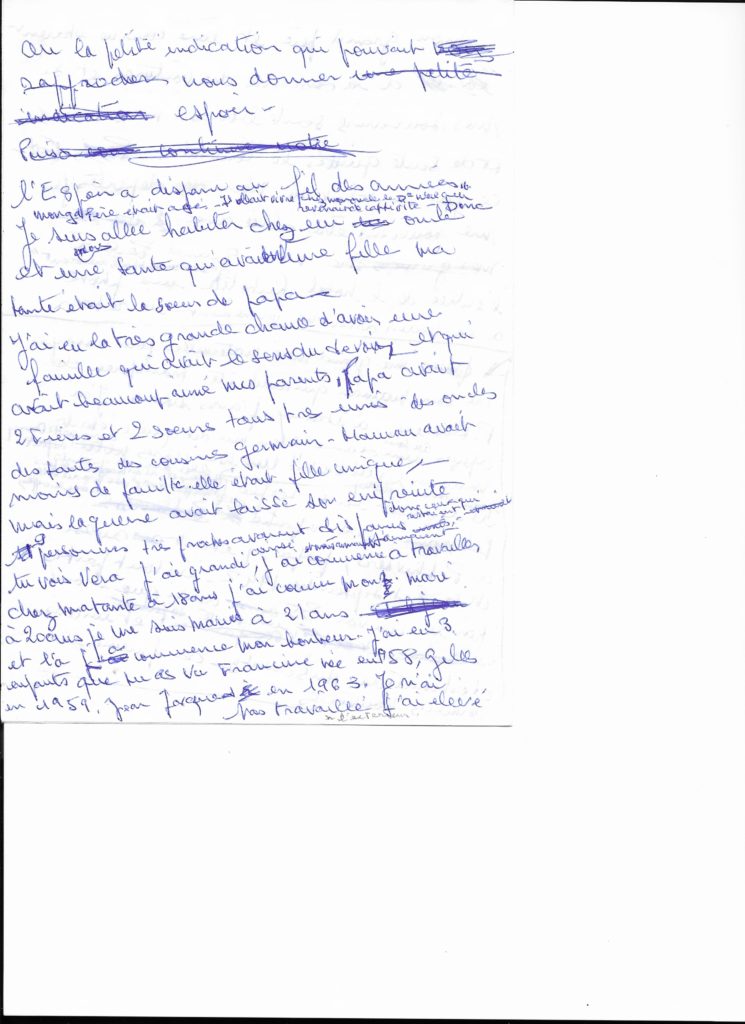 ou la petite indication qui pouvait
rapprocher nous donner une petite
indication espoir -
Puis continue notre
l'Espoir a disparu au fil des années
mon gd Père était agé - Il allait vivre chez mon oncle le Dr
revenait de captivité - Donc
Je suis allée habiter chez un oncle
mais
et une tante qui avait une fille ma
tante était la soeur de papa -
J'ai eu la très grande chance d'avoir une
famille qui avait le sens du devoir et qui
avait beaucoup aimé mes parents, Papa avait
2 Frères et 2 soeurs tous très unis - des oncles
des tantes des cousins germain - Maman avait
moins de famille. elle était fille unique, -
mais la guerre avait laissé son enpreinte
donc ceux qui
restaient
9 personnes très proches avaient disparues
tu vois Vera J'ai grandi, J'ai commencé a travailler
chez ma tante à 18 ans j'ai connu mon mari
à 20 ans je me suis marié à 21 ans
et là a commencé mon bonheur - J'ai eu 3
enfants que tu as vu Francine née en 1958, Gilles
en 1959. Jean Jacques en 1963. Je n'ai
pas travaillé J'ai élevé
à l'exterieur